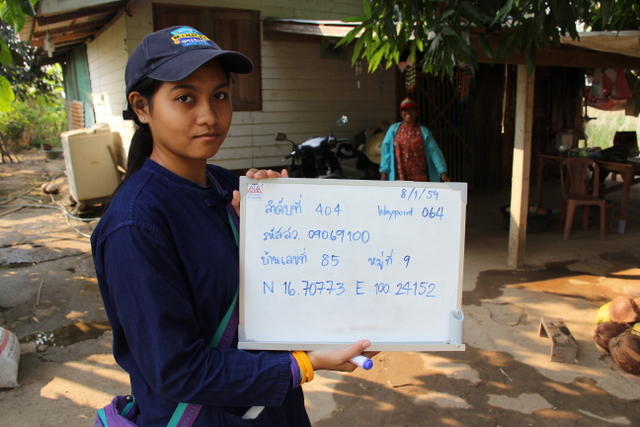 8/1/59
ลำดับที่ 404 Waypoint 064
รหัสสว. 09069100
บ้านเลขที่ 85 หมู่ที่ 9
N 16.70773 E 100.24152